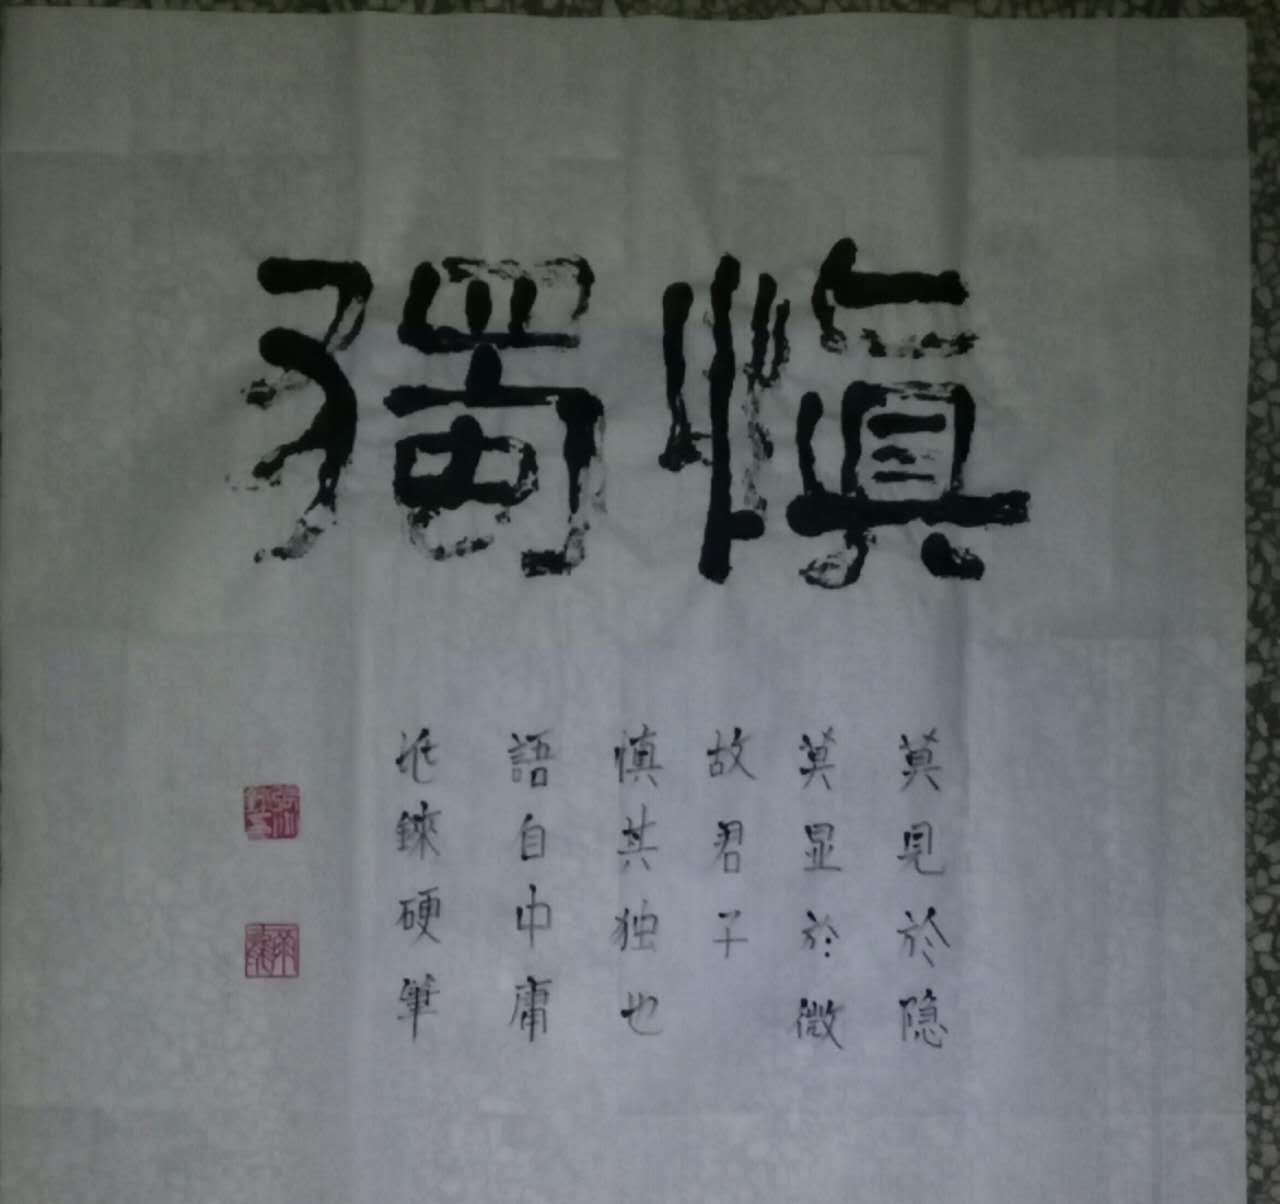 慎獨
莫見於隐
莫显於微
故君子
慎其独也
語自中庸
硬筆